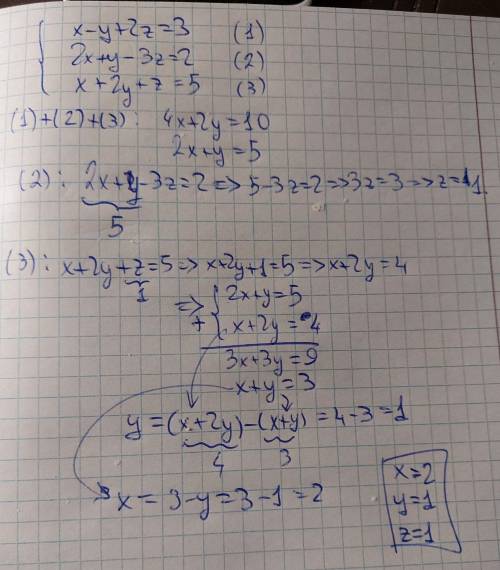 x-y+2z=3 (1)
2x+y-3z=2 (2)
x+2y+z=5 (3)
(1)+(2)+(3): 4x+2y=10
2x+y=5
(2): 2x+y-3z=2=>5-3z=2=>3z=3=>z=1
5
(3): x+2y+z=5=>x+2y+1=5=>x+2y=4
1
=> 2x+y=5
+ x+2y=4
3x+3y=9
x+y=3
y=(x+2y)-(x+y)=4-3=1
4 3
x=3-y=3-1=2
x=2
y=1
z=1